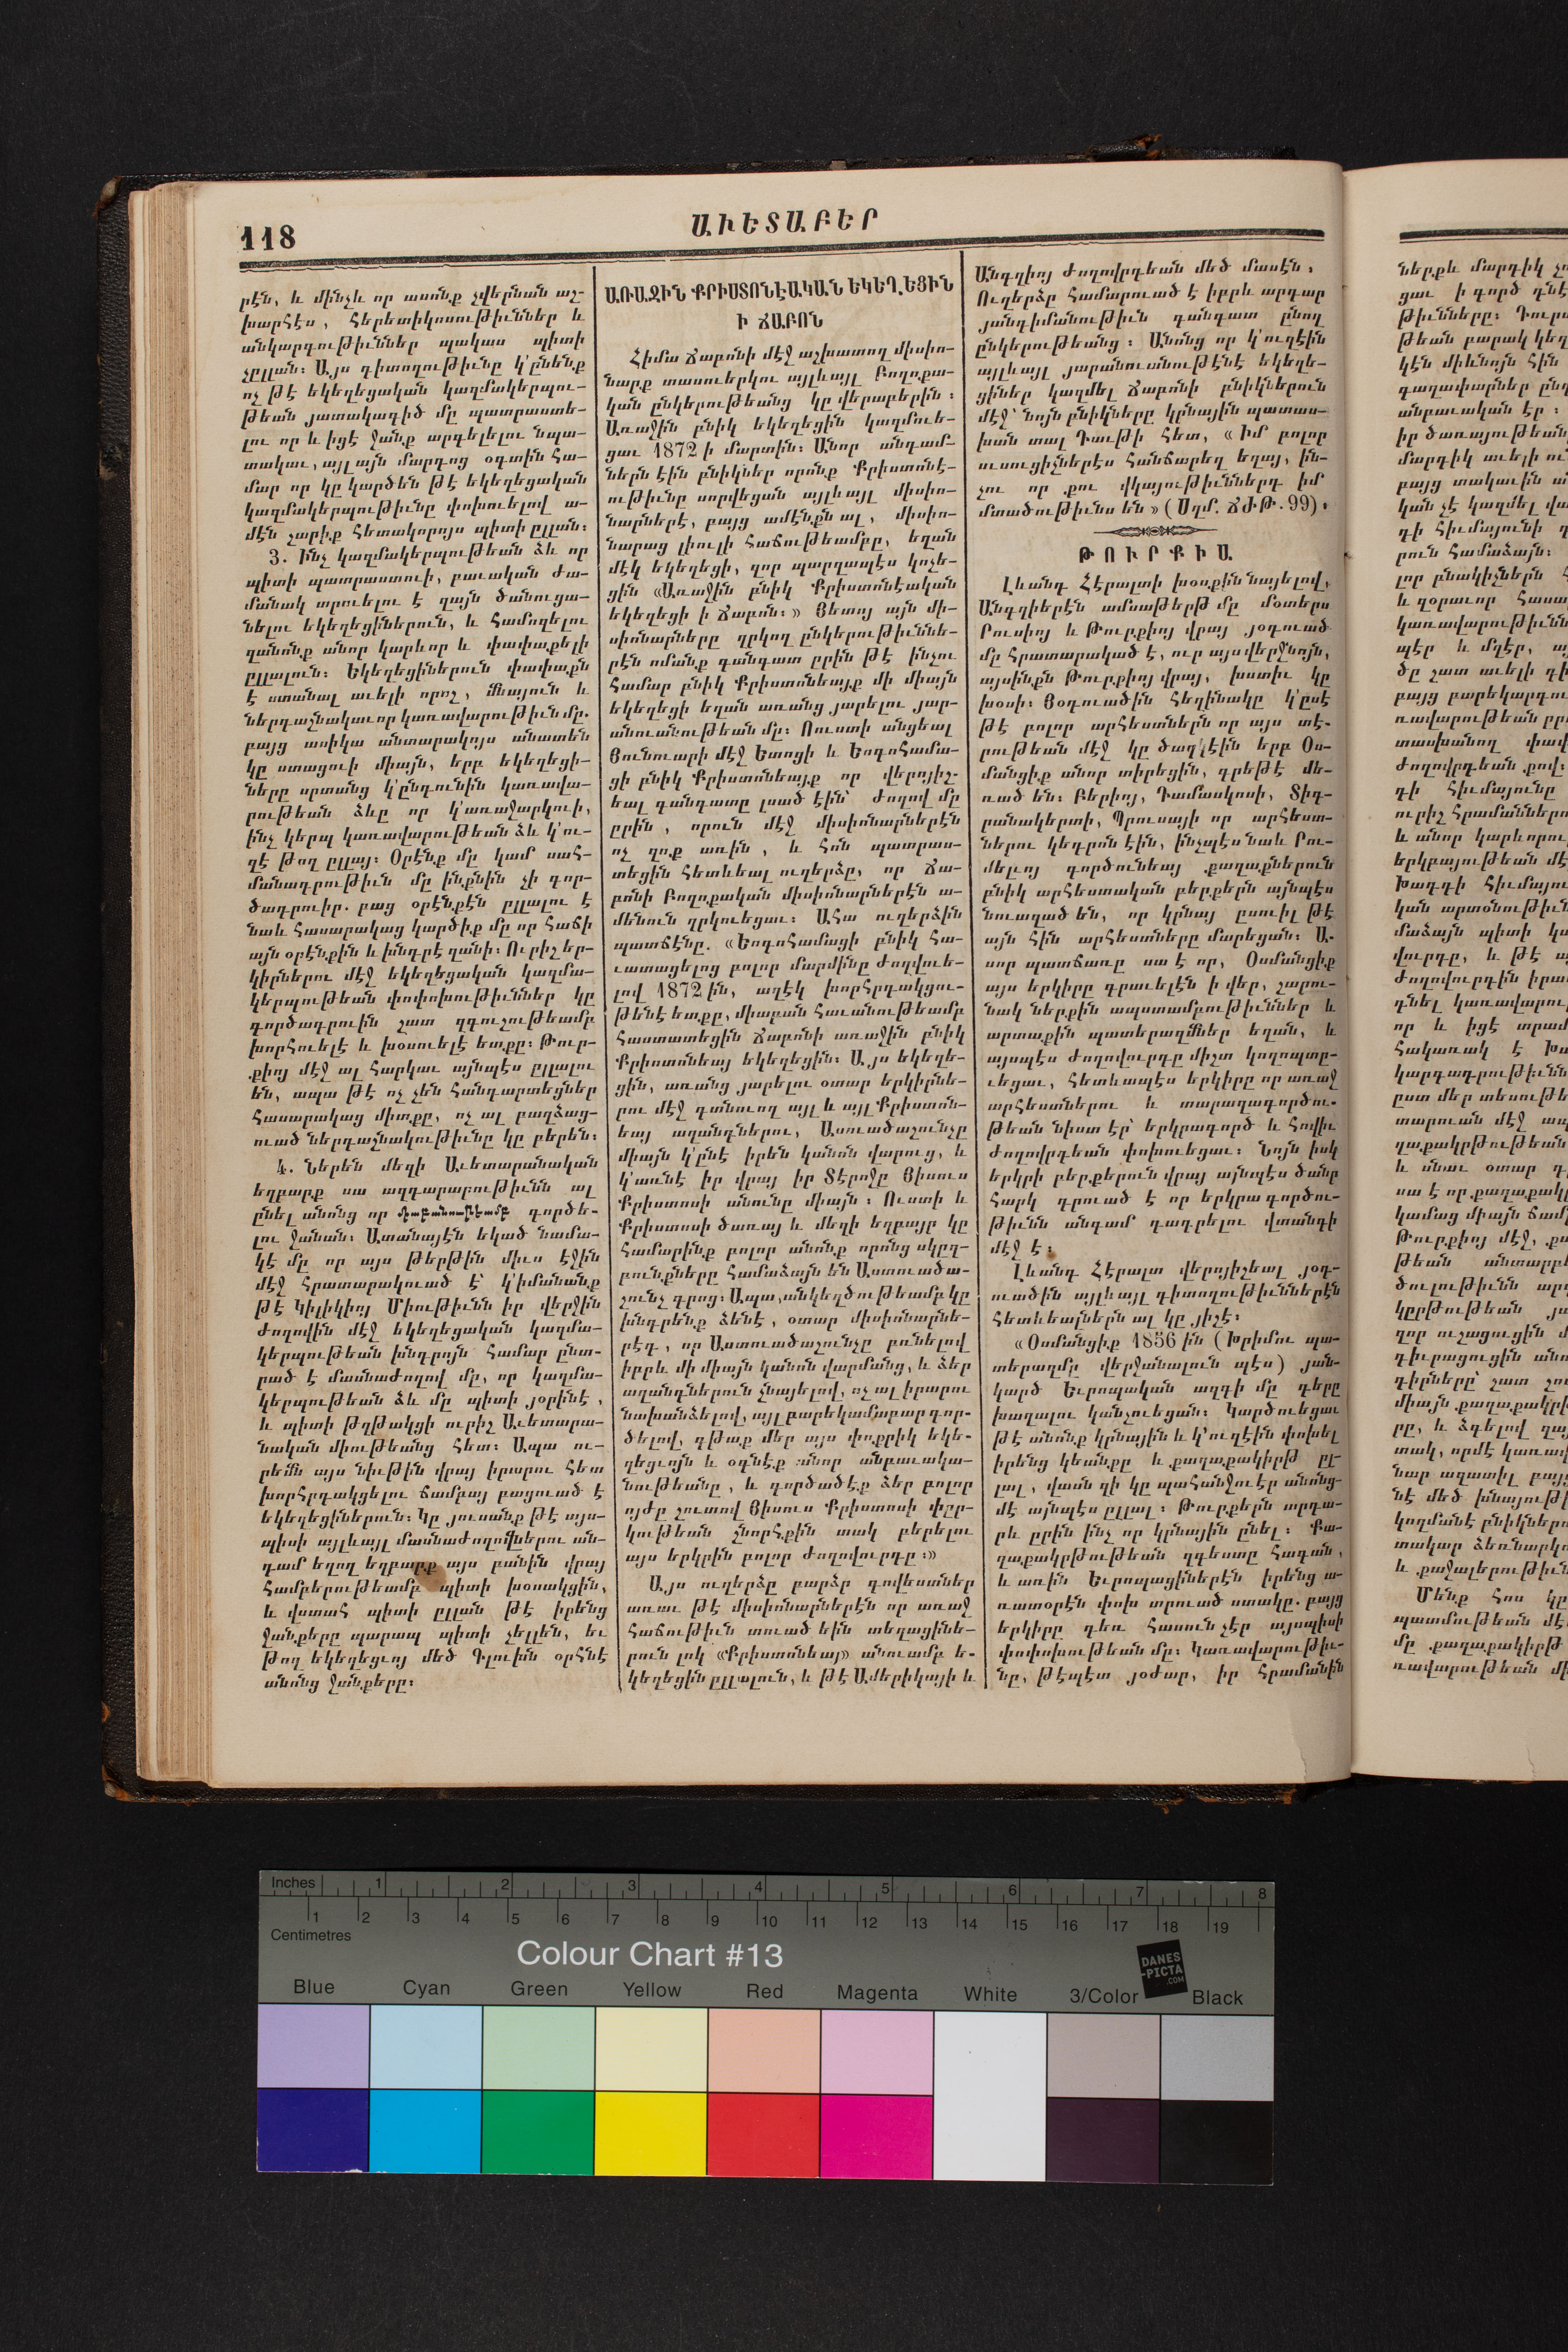 118
ԱՒԵՏԱԲԵՐ
րէն, և մինչև որ ասոնք չվերնան աշ-
խարհէս, հերետիկոսութիւններ և
անկարգութիւններ պակաս պիտի
չըլլան։ Այս դիտողութիւնը կ՚ընենք
ոչ թէ եկեղեցական կազմակերպու-
թեան յատակագիծ մը պատրաստե-
լու որ և իցէ ջանք արգելելու նպա-
տակաւ, այլ այն մարդոց օգտին հա-
մար որ կը կարծեն թէ եկեղեցական
կազմակերպութիւնը փոխուելով ա-
մէն չարիք հետակորոյս պիտի ըլլան։
3. Ինչ կազմակերպութեան ձև որ
պիտի պատրաստուի, բաւական ժա-
մանակ տրուելու է զայն ծանուցա-
նելու եկեղեցիներուն, և համոզելու
զանոնք անոր կարևոր և փափաքելի
ըլլալուն։ Եկեղեցիներուն փափաքն
է ստանալ աւելի որոշ, հնայուն և
ներդաշնակաւոր կառավարութիւն մը.
բայց ասիկա անտարակոյս անատեն
կը ստացուի միայն, երբ եկեղեցի-
ները սրտանց կ՚ընդունին կառավա-
րութեան ձևը որ կ՚առաջարկուի,
ինչ կերպ կառավարութեան ձև կ՚ու-
զէ թող ըլլայ։ Օրէնք մը կամ սահ-
մանադրութիւն մը ինքնին չի գոր-
ծադրուիր. բաց օրէնքէն ըլլալու է
նաև հասարակաց կարծիք մը որ հաճի
այն օրէնքին և խնդրէ զանի։ Ուրիշ եր-
կիրներու մէջ եկեղեցական կազմա-
կերպութեան փոփոխութիւններ կը
գործադրուին շատ զգուշութեամբ
խորհուելէ և խօսուելէ ետքը։ Թուր-
քիոյ մէջ ալ հարկաւ այնպէս ըլլալու
են, ապա թէ ոչ չեն հանդարտեցներ
հասարակաց միտքը, ոչ ալ բաղձաց-
ուած ներդաշնակութիւնը կը բերեն։
4. Ներեն մեզի Աւետարանական
եղբարք սա ազդարարութիւնն ալ
ընել անոնց որ գործե-
լու ջանան։ Ատանայէն եկած նամա-
կէ մը որ այս թերթին միւս էջին
մէջ հրատարակուած է՝ կ՚իմանանք
թէ Կիլիկիոյ Միութիւնն իր վերջին
ժողովին մէջ եկեղեցական կազմա-
կերպութեան խնդրոյն համար ընտ-
րած է մասնաժողով մը, որ կազմա-
կերպութեան ձև մը պիտի յօրինէ,
և պիտի թղթակցի ուրիշ Աւետարա-
նական միութեանց հետ։ Ապա ու-
րեմն այս նիւթին վրայ իրարու հետ
խորհրդակցելու ճամբայ բացուած է
եկեղեցիներուն։ Կը յուսանք թէ այս-
պիսի այլևայլ մասնաժողովներու ան-
դամ եղող եղբարք այս բանին վրայ
համբերութեամբ պիտի խօսակցին,
և վստահ պիտի ըլլան թէ իրենց
ջանքերը պարապ պիտի չելլեն, եւ
թող եկեղեցւոյ մեծ Գլուխն օրհնէ
անոնց ջանքերը։
ԱՌԱՋԻՆ ՔՐԻՍՏՈՆԷԱԿԱՆ ԵԿԵՂԵՑԻՆ
Ի ՃԱԲՈՆ
Հիմա Ճաբոնի մէջ աշխատող միսիո-
նարք տասուերկու այլևայլ Բողոքա-
կան ընկերութեանց կը վերաբերին։
Առաջին բնիկ եկեղեցին կազմուե-
ցաւ 1872 ի մարտին։ Անոր անդամ-
ներն էին բնիկներ որոնք Քրիստոնէ-
ութիւնը սորվեցան այլևայլ միսիո-
նարներէ, բայց ամէնքն ալ, միսիո-
նարաց լիուլի հաճութեամբը, եղան
մէկ եկեղեցի, զոր պարզապէս կոչե-
ցին «Առաջին բնիկ Քրիստոնէական
եկեղեցի ի Ճաբոն։» Յետոյ այն մի-
սիոնարները ղրկող ընկերութիւննե-
րէն ոմանք գանգատ ըրին թէ ինչու
համար բնիկ Քրիստոնեայք մի միայն
եկեղեցի եղան առանց յարելու յար-
անուանութեան մը։ Ուստի անցեալ
Յունուարի մէջ Ետոցի և Եոգոհամա-
ցի բնիկ Քրիստոնեայք որ վերոյիշ-
եալ գանգատը լսած էին՝ ժողով մը
ըրին, որուն մէջ միսիոնարներէն
ոչ զոք առին, և հոն պատրաս-
տեցին հետևեալ ուղերձը, որ Ճա-
բոնի Բողոքական միսիոնարներէն ա-
մենուն ղրկուեցաւ։ Ահա ուղերձին
պատճէնը. «Եոգոհամացի բնիկ հա-
ւատացելոց բոլոր մարմինը ժողվուե-
լով 1872 ին, աղէկ խորհրդակցու-
թենէ ետքը, միաբան հաւանութեամբ
հաստատեցին Ճաբոնի առաջին բնիկ
Քրիստոնեայ եկեղեցին։ Այս եկեղե-
ցին, առանց յարելու օտար երկիրնե-
րու մէջ գտնուող այլ և այլ Քրիստոն-
եայ աղանդներու, Ասուածաշունչը
միայն կ՚ընէ իրեն կանոն վարուց, և
կ՚առնէ իր վրայ իր Տէրոջը Յիսուս
Քրիստոսի անունը միայն։ Ուստի և
Քրիստոսի ծառայ և մեզի եղբայր կը
համարինք բոլոր անոնք որոնց սկըզ-
բունքները համաձայն են Աստուածա-
շունչ գրոց։ Ապա, անկեղծութեամբ կը
խնդրենք ձենէ, օտար միսիոնարնե-
րէդ, որ Աստուածաշունչը բռնելով
իբրև մի միայն կանոն վարմանց, և ձեր
աղանդներուն չնայելով, ոչ ալ իրարու
նախանձելով, այլ բարեկամաբար գոր-
ծելով, գթաք մեր այս փոքրիկ եկե-
ղեցւոյն և օգնէք անոր անբաւակա-
նութեանը, և գործածէք ձեր բոլոր
ոյժը շուտով Յիսուս Քրիստոսի փըր-
կութեան շնորհքին տակ բերելու
այս երկրին բոլոր ժողովուրդը։»
Այս ուղերձը բարձր գովեստներ
առաւ թէ միսիոնարներէն որ առաջ
հաճութիւն տուած էին տեղացինե-
րուն լոկ «Քրիստոնեայ» անուամբ ե-
կեղեցին ըլլալուն, և թէ Ամերիկայի և
Անգղիոյ ժողովրդեան մեծ մասէն։
Ուղերձը համարուած է իբրև արդար
յանդիմանութիւն գանգատ ընող
ընկերութեանց։ Անոնց որ կ՚ուզէին
այլևայլ յարանուանութէնէ եկեղե-
ցիներ կազմել Ճաբոնի բնիկներուն
մէջ՝ նոյն բնիկները կրնային պատաս-
խան տալ Դաւթի հետ, «Իմ բոլոր
ուսուցիչներէս հանճարեղ եղայ, ին-
չու որ քու վկայութիւններդ իմ
մտածութիւնս են» (Սղմ. ՃԺԹ. 99)։
ԹՈՒՐՔԻԱ
Լևանդ Հէրալտի խօսքին նայելով,
Անգղիերէն ամսաթերթ մը մօտերս
Րուսիոյ և Թուրքիոյ վրայ յօդուած
մը հրատարակած է, ուր այս վերջնոյն,
այսինքն Թուրքիոյ վրայ, խստիւ կը
խօսի։ Յօդուածին հեղինակը կ՚ըսէ
թէ բոլոր արհեստներն որ այս տէ-
րութեան մէջ կը ծաղկէին երբ Օս-
մանցիք անոր տիրեցին, գրեթէ մե-
ռած են։ Բերիոյ, Դամասկոսի, Տիգ-
րանակերտի, Պրուսայի որ արհեստ-
ներու կեդրոն էին, ինչպէս նաև Րու-
մելւոյ գործունեայ քաղաքներուն
բնիկ արհեստական բերքերն այնպէս
նուաղած են, որ կրնայ ըսուիլ թէ
այն հին արհեստները մարեցան։ Ա-
սոր պատճառը սա է որ, Օսմանցիք
այս երկիրը գրաւելէն ի վեր, շարու-
նակ ներքին ապստամբութիւններ և
արտաքին պատերազմներ եղան, և
այսպէս ժողովուրդը միշտ կողոպտը-
ւեցաւ, հետևապէս երկիրը որ առաջ
արհեստներու և տարազագործու-
թեան նիստ էր՝ երկրագործ և հովիւ
ժողովրդեան փոխուեցաւ։ Նոյն իսկ
երկրի բերքերուն վրայ այնպէս ծանր
հարկ դրուած է որ երկրագործու-
թիւնն անգամ դադրելու վտանգի
մէջ է։
Լևանդ Հէրալտ վերոյիշեալ յօդ-
ուածին այլևայլ դիտողութիւններէն
հետևեալներն ալ կը յիշէ։
«Օսմանցիք 1856 ին (Խրիմու պա-
տերազմը վերջանալուն պէս) յան-
կարծ Եւրոպական ազգի մը դերը
խաղալու կանչուեցան։ Կարծուեցաւ
թէ անոնք կրնային և կ՚ուզէին փոխել
իրենց կեանքը և քաղաքակիրթ ըլ-
լալ, վասն զի կը պահանջուէր անոնց-
մէ այնպէս ըլլալ։ Թուրքերն արդա-
րև ըրին ինչ որ կրնային ընել։ Քա-
ղաքակրթութեան զգեստը հագան,
և առին Եւրոպացիներէն իրենց ա-
ռատօրէն փոխ տրուած ստակը. բայց
երկիրը դեռ հասուն չէր այսպիսի
փոփոխութեան մը։ Կառավարութիւ-
նը, թէպէտ յօժար, իր հրամանին
Inches 1 2 3 4 5 6 7 8
1 2 3 4 5 6 7 8 9 10 11 12 13 14 15 16 17 18 19
Centimetres
Colour Chart #13
DANES
-PICTA
.COM
Blue Cyan Green Yellow Red Magenta White 3/Color Black